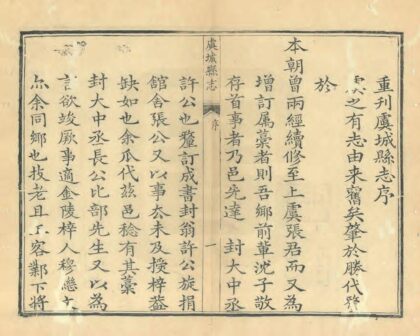 重刊虞城縣志序
虞之有志由來舊矣肇於勝代
於
本朝曾兩經續修至上虞張君而又為
增訂屬藁者則吾鄉前輩沈子敬
存首事者乃邑先達 封大中丞
虞城縣志
序
一
許公也釐訂成書封翁許公旋捐
館舍張公又以事去未及授梓葢
缺如也余承乏茲邑稔有其藁
封大中丞長公比部先生又以為
言欲竣厥事適金陵梓人穆
亦余同鄉也技老且工客鄴下將